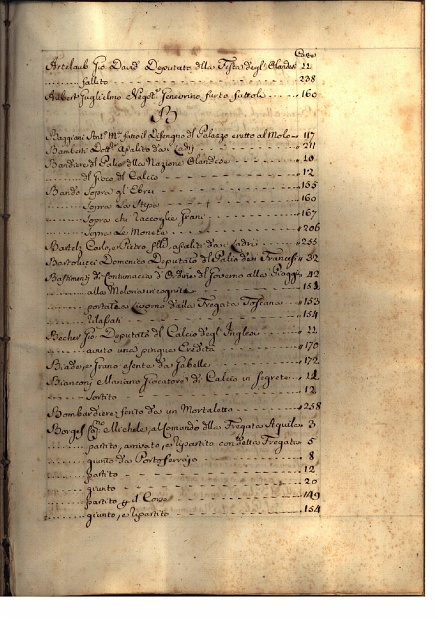 Carte
Artelaub Gio. David Deputato della Festa degl'Olandesi 22
fallito 228
Aubert Guglielmo Negoz.e Genevrino furto fattoli 160
B
Baggiani Ant.o M.a fatto il Disegno del Palazzo eretto al Molo 117
Bamberti Dott.e da Ladri 211
Bandiere del Palio della Nazione Olandese 10
del Gioco del Calcio 12
Bando Sopra gl'Ebrei 155
Sopra La Stipa 160
Sopra chi raccoglie Grani 167
Sopra Le Monete 206
Bartels Carlo, e Pietro da Ladri 255
Bartolucci Domenico Deputato del Palio de Francesi 32
Bastimenti di Contumacia d'Ordine del Governo alla 42
alla Meloria incognita 151
portato a Livorno dalla Fregata Toscana 153
152
Becher Gio. Deputato del Calcio degl'Inglesi 22
avuto una pingue Eredità 170
Biade, e Grano esente da Gabelle 172
Bianconj Mariano Giocatore di Calcio in segreto 12
Sortito 12
Bombardiere ferito da un Mortaletto 258
Borgel Cap.no Michele, al Comando della Fregata Aquila 3
partito, arrivato, e ripartito con detta Fregata 5
giunto da Porto Ferrajo 8
partito 12
giunto 20
partito p il Corso 149
giunto, e ripartito 154